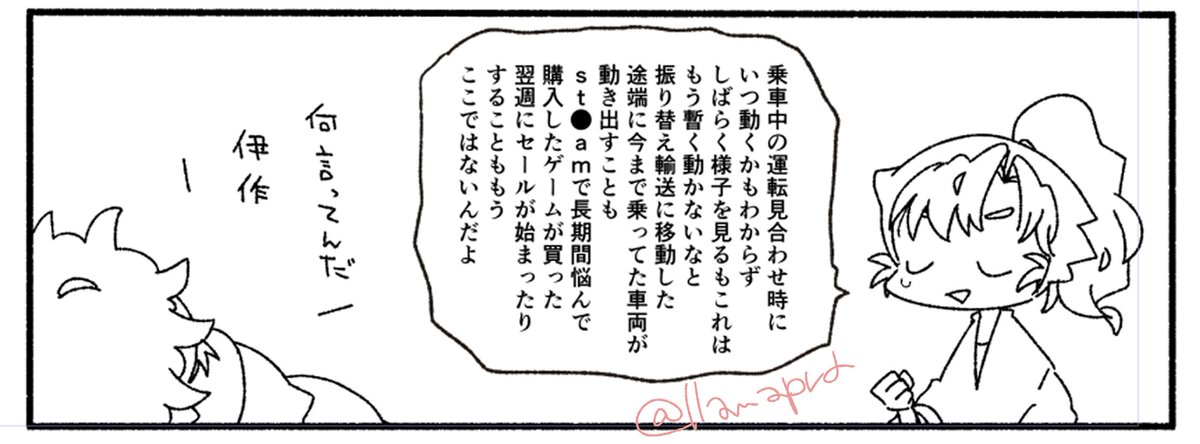 乗車中の運転見合わせ時に
いつ動くかもわからず
しばらく様子を見るもこれは
もう暫く動かないなと
振り替え輸送に移動した
途端に今まで乗ってた車両が
動き出すことも
st●amで長期間悩んで
購入したゲームが買った
翌週にセールが始まったり
することももう
ここではないんだよ
何言ってんだ
伊作
@llamaprd